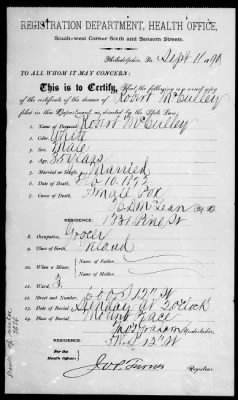 REGISTRATION DEPARTMENT, HEALTH OFFICE,
South-west Corner Sixth and Sansom Streets.
Philadelphia, Sept 11 1890
TO ALL WHOM IT MAY CONCERN:
This is to Certify, That the following is a correct copy
of the certificate of the decease of Robert McCulley
filed in this Department, as directed by the State Law:
1. Name of Deceased, Robert McCulley
2. Color, White
3. Sex, Male
4. Age, 35 years
5. Married or Single, Married
6. Date of Death, 10. 187
7. Cause of Death, Small Pox
McLean M.D.
RESIDENCE: 1731 Pine St
8. Occupation, Grocer
9. Place of Birth, Ireland
10. When a Minor, Name of Father,
Name of Mother,
11. Ward,
12. Street and Number, 600 S 12th St
13. Date of Burial, Sunday at 2 oclock
14. Place of Burial, Mount
Graham Undertaker,
RESIDENCE: 12th St
For the
Health Officer: Turner Registrar.